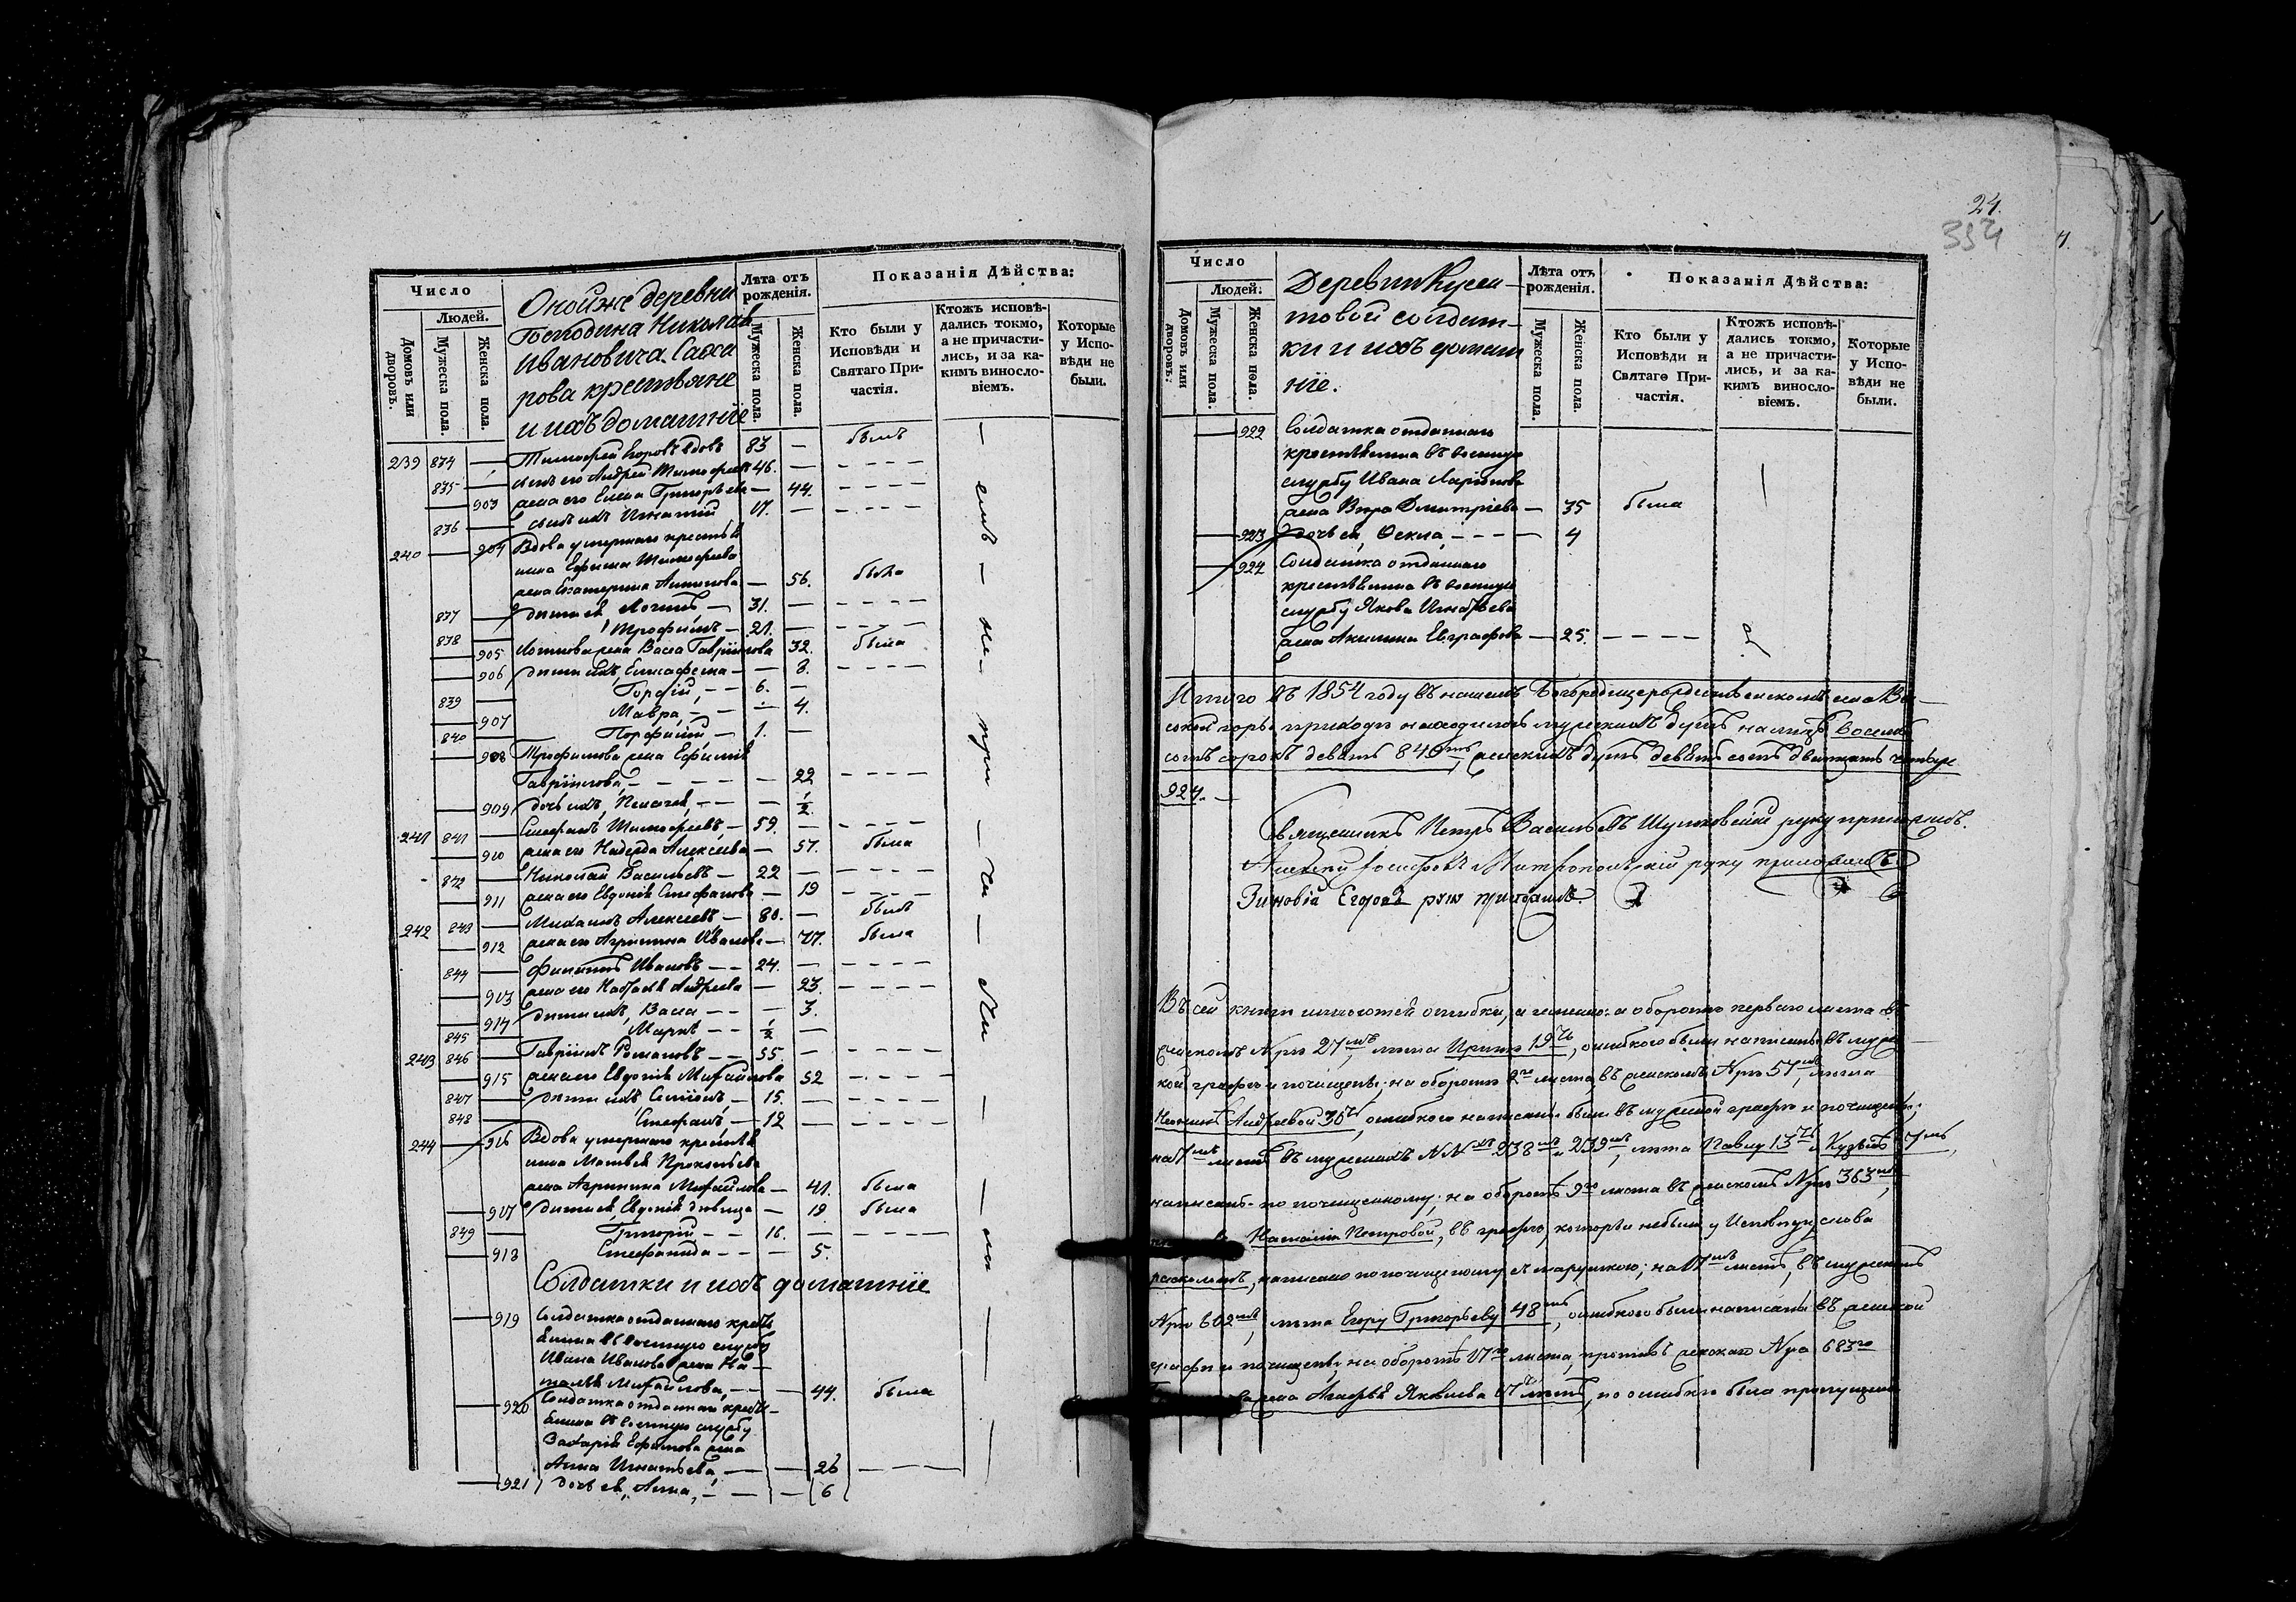 Число
Людей.
Домовъ или дворовъ.
Мужеска пола.
Женска пола.
Оной же деревни
Господина Николая
Ивановича Саха
рова крестьяне
и ихъ домашніе
Лѣта отъ рожденія.
Мужеска пола.
Женска пола.
Показанія Дѣйства:
Кто были у Исповѣди и Святаго Причастія.
Ктожъ исповѣдались токмо, а не причастились, и за какимъ винословіемъ.
Которые у Исповѣди не были.
239 834 — Тимофей Егоровъ вдовъ 83 — былъ
835 — сынъ его Андрей Тимофеевъ 46. — – – – –
— 903 жена его Елена Григорьева — 44. – – – –
836 — сынъ ихъ Игнатій 17. — – – – –
240 — 904 Вдова умершаго крестья
нина Ефима Тимофеева
жена Екатерина Антонова — 56. была
837 — дѣти ея, Логинъ — 31. — – – – –
838 — Трофимъ — 21. — – – – –
— 905 Логинова жена Васса Гавріилова 32. была
— 906 дѣти ихъ, — 8. – – – –
839 — – – 6. —
— 907 Мавра, – – — 4.
840 — Порфирій — 1. —
— 908 Трофимова жена Ефимія
Гавріилова, — — 22 – – – –
— 909 дочь ихъ, Пелагея, – – — ½
241 841 — Стефанъ Тимофеевъ, — 59. — – – – –
— 910 жена его Надежда Алексеева — 57. была
842 — Николай Васильевъ — 22 — – – – –
— 911 жена его Евдокія Стефанова — 19 – – – –
242 843 — Михаилъ Алексеевъ, — 80. — былъ
— 912 жена его Агрипина Иванова — 77. была
844 — Филиппъ Ивановъ – – 24. — – – – –
— 913 жена его Наталья Андреева — 23. – – – –
— 914 дѣти ихъ, Васса – – — 3.
845 — Маркъ – – ½ —
243 846 — Гавріилъ Романовъ – – 55. — – – – –
— 915 жена его Евдокія Михайлова 52 – – – –
847 — дѣти ихъ — 15. — – – – –
848 — Стефанъ, — 12 — – – – –
244 — 916 Вдова умершаго крестья
нина Матвея Прокопьева
жена Агрипина Михайлова — 41. была
— 917 дѣти ея, Евдокія дѣвица — 19. была
849 — Григорій – – 16. — – – – –
— 918 Стефанида – – — 5.
Солдатки и ихъ домашніе
— 919 Солдатка отданнаго кресть
янина въ военную службу
Ивана Иванова жена На—
талья Михайлова, – – — 44. была
— 920 Солдатка отданнаго кресть—
янина въ военную службу
Захарія Ефимова жена
Анна Игнатьева, — — 26 – – – –
— 921 дочь ея, Анна, – — — 6
24.
354
Число
Людей.
Домовъ или дворовъ:
Мужеска пола.
Женска пола.
Деревни Кусен—
товой солдат—
ки и ихъ домаш
ніе.
Лѣта отъ рожденія.
Мужеска пола.
Женска пола.
Показанія Дѣйства:
Кто были у Исповѣди и Святаго Причастія.
Ктожъ исповѣдались токмо, а не причастились, и за какимъ винословіемъ.
Которые у Исповѣди не были.
— 922 Солдатка отданнаго
крестьянина въ военную
службу Ивана Ларіонова
жена Вѣра Дмитріева — 35 была
— 923 дочь ея, Фекла, – – – — 4
— 924 Солдатка отданнаго
крестьянина въ военную
службу Якова Игнатьева
жена Акилина Евграфова — 25. – – – –
Итого въ 1854 году въ нашемъ Богородицерождественскомъ села Вы—
сокой горы приходѣ находилось мужескихъ душъ на лицо восемь
сотъ сорокъ девять 849ть, женскихъ душъ девять сотъ двадцать четыре
924. —
Священникъ Петръ Васильевъ руку приложилъ.
руку приложилъ
Зиновій Егоровъ руку приложилъ.
Въ сей книгѣ имѣются ошибки, а именно: на оборотѣ перваго листа въ
женскомъ № 27мъ, лѣта Ирины 19ть, ошибкою были написаны въ мужес—
кой графѣ и почищены; на оборотѣ 2го листа въ женскомъ № 57мъ, лѣта
Андреевой 30ть, ошибкою написаны были въ мужеской графѣ и почищены;
на 7мъ листѣ въ мужескихъ №№ 238мъ и 239мъ, лѣта Павлу 13ть и Кузьмѣ 7мь,
написаны по почищенному; на оборотѣ 9го листа въ женскомъ № 363мъ,
Наталіи Петровой, въ графѣ, которые небыли у Исповѣди, слова
расколомъ, написано по почищенному; на 17мъ листѣ, въ мужескомъ
№ 602мъ, лѣта Егору Григорьеву 48мь, ошибкою были написаны въ женской
графѣ и почищены; на оборотѣ 17го листа, противъ женскаго № 683го
жена Агафья Яковлева 17ть лѣтъ, по ошибкѣ была пропущена